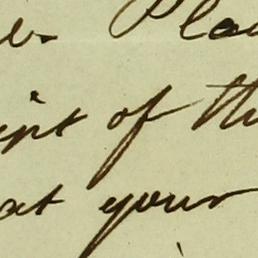 Pla
int of th
at your